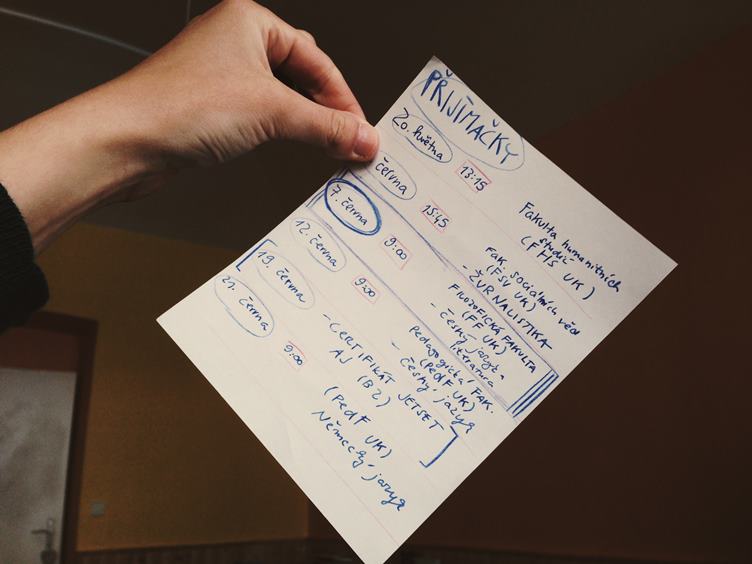 PŘIJÍMAČKY
20. května 13:15 Fakulta humanitních
studií
(FHS UK)
června 15:45 Fak. sociálních věd
(FSV UK)
- ŽURNALISTIKA
7. června 9:00 FILOZOFICKÁ FAKULTA
(FF UK)
- Český jazyk a
literatura
12. června 9:00 Pedagogická FAK.
(PedF UK)
- Český jazyk
19. června - CERTIFIKÁT JETSET
AJ (B2)
21. června 9:00 (PedF UK)
Německý jazyk